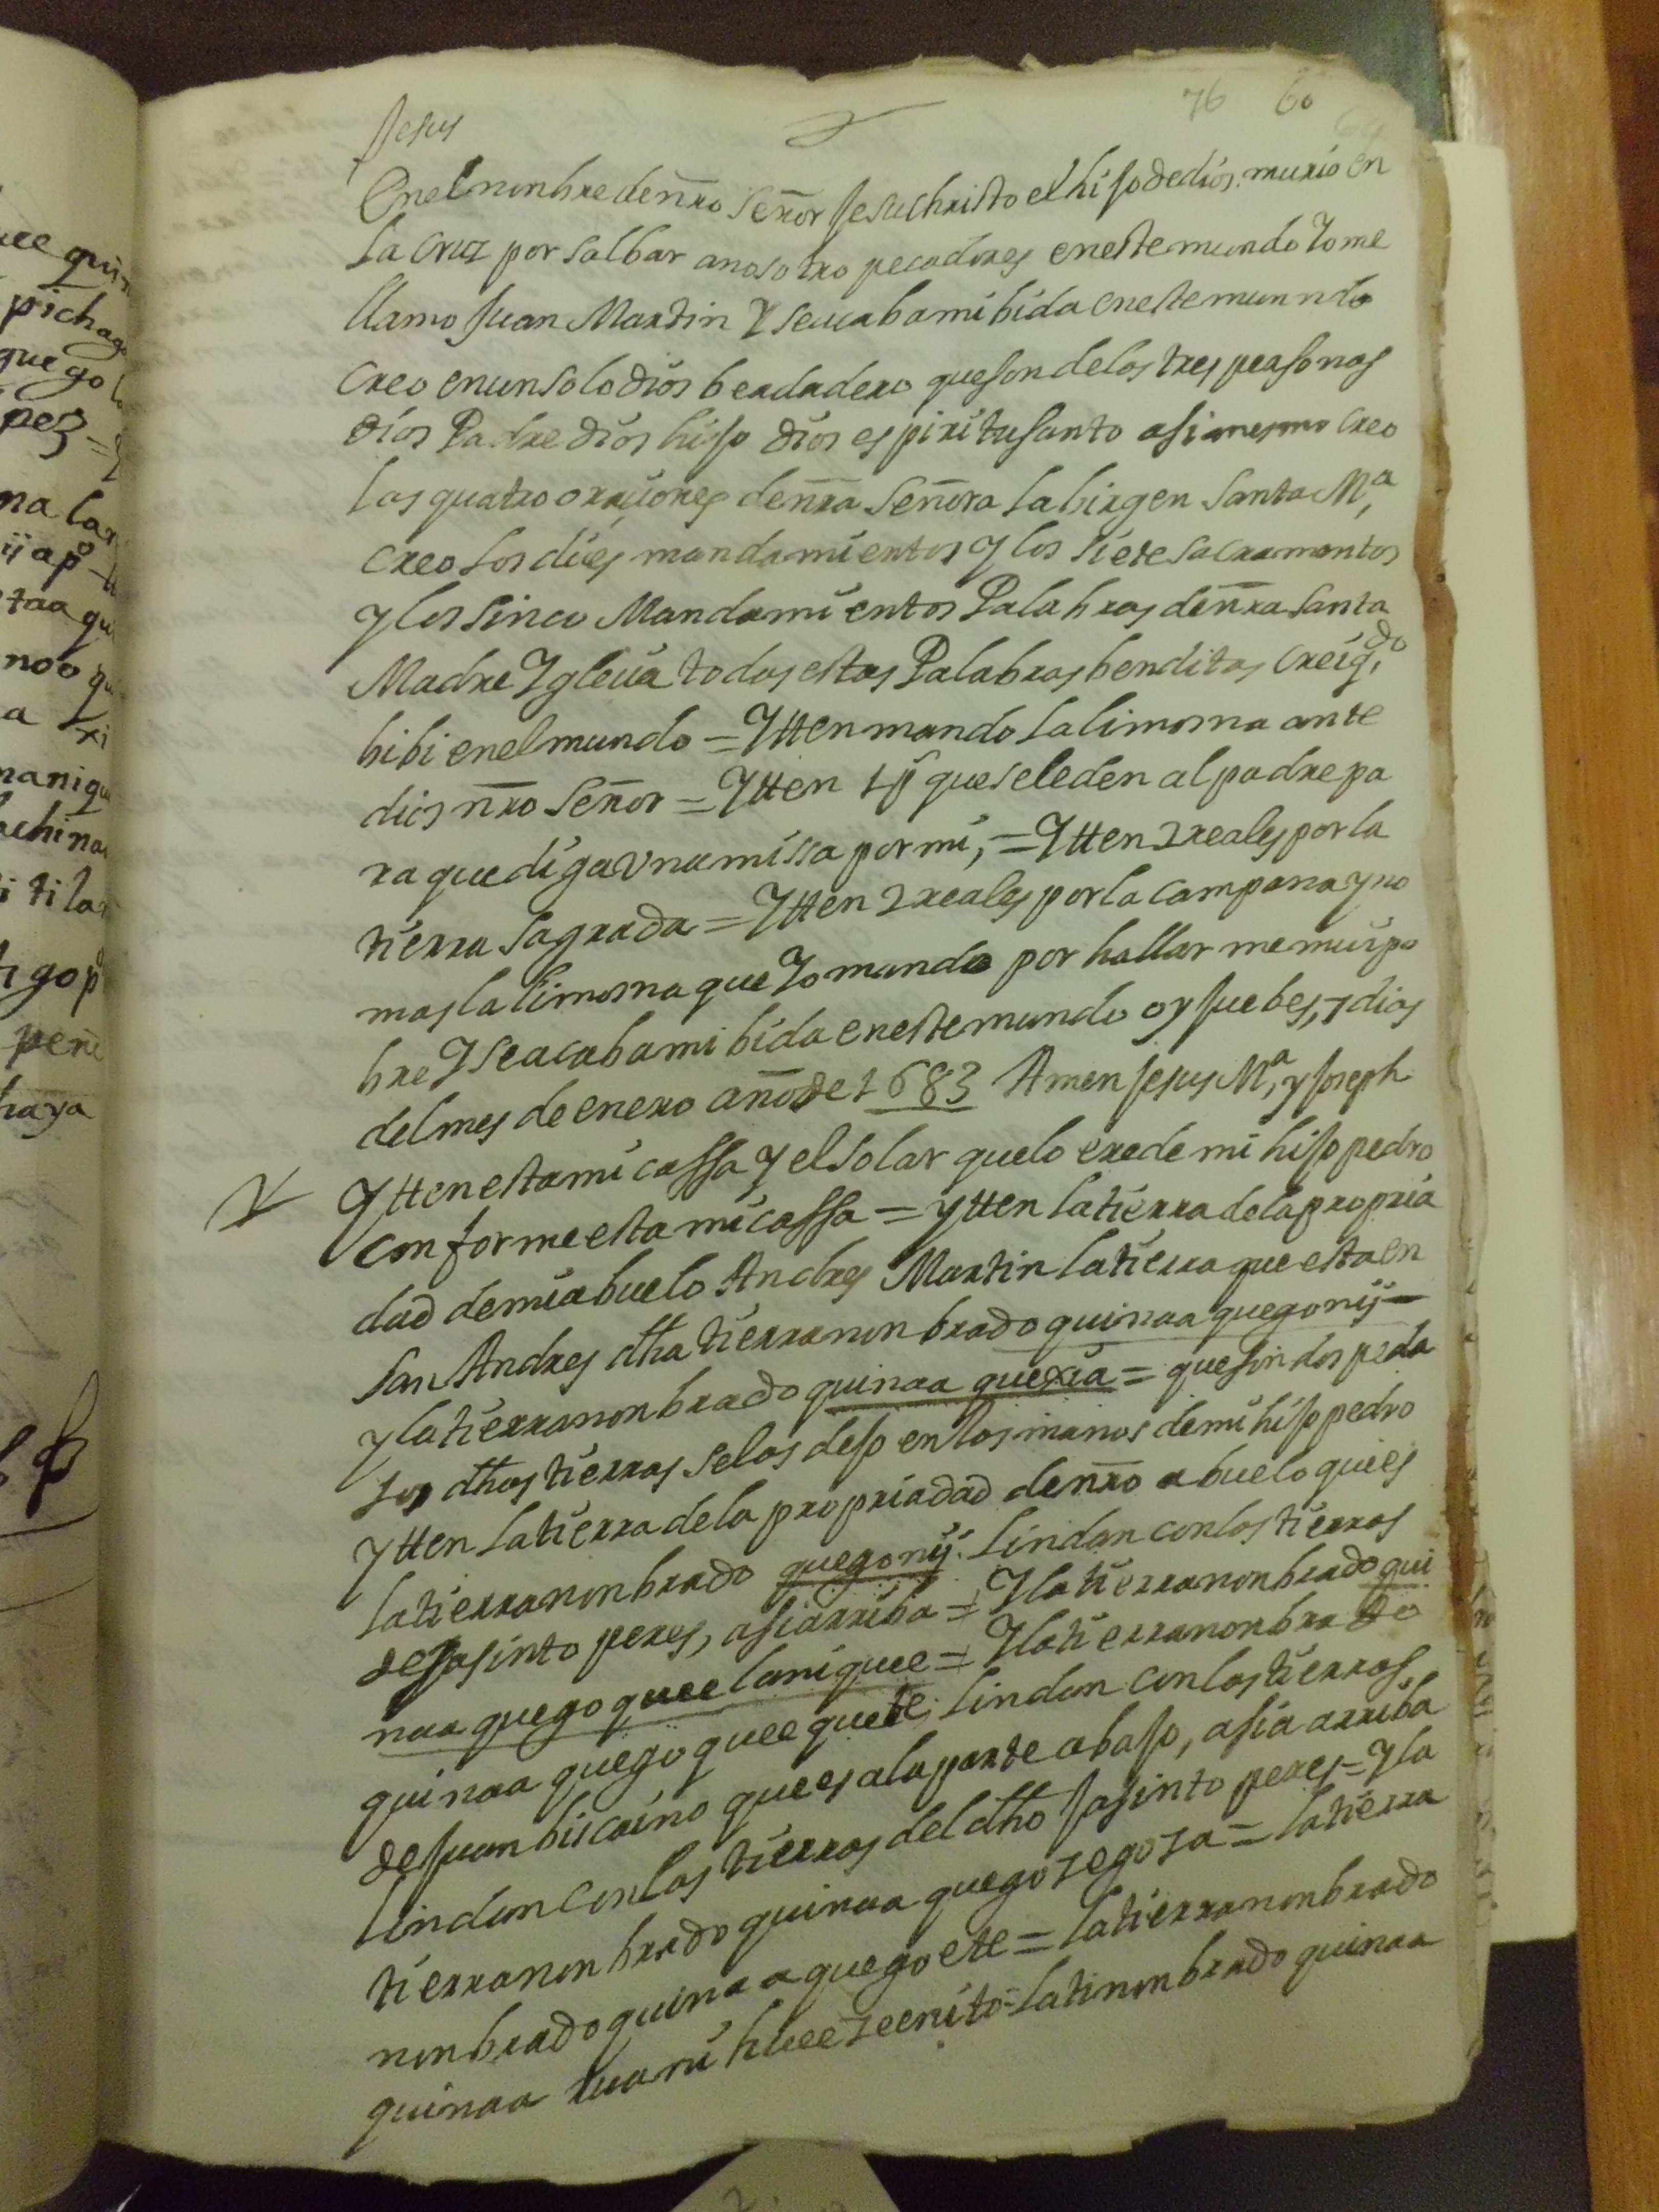 76 60
Jesus
En el nonbre de nr̄o señor Jesuchristo el hijo de dios. murio en
la Cruz por salbar a nosotro pecadores en este mundo Yo me
llamo Juan Martin Y se acaba mi bida en este munndo
Creo en un solo dios berdadero que son de los tres personas
dios Padre dios hijo dios espiritu santo asi mesmo Creo
las quatro oraçiones de nr̄a señora La birgen Santa Mª,
Creo Los dies mandamientos y los siete sacramentos
y los sinco Mandamientos Palabras de nr̄a santa
Madre Yglecia todas estas Palabras benditas crei q.do
bibi en el mundo = Ytten mando La limosna ante
dios nr̄o señor = Ytten 1 p que se le den al padre pa
ra que diga Vna missa por mi, = Ytten 2 reales por la
tierra sagrada = Ytten 2 reales por la campana y no
mas la limosna que Yo mando por hallar me mui po
bre Y se acaba mi bida en este mundo oy juebes, 7 dias
del mes de enero año de 1683 Amen Jesus Mª, y Joseph
Ytten esta mi cassa Y el solar que lo erede mi hijo pedro
conforme esta mi cassa = ytten la tierra de la propria
dad de mi abuelo Andres Martin la tierra que esta en
san Andres dha tierra nonbrado quinaa quegonij
y la tierra nonbrado quinaa quexia = que son dos peda
sos dhas tierras se las dejo en las manos de mi hijo pedro
ytten La tierra de la propriadad de nr̄o abuelo qui es
la tierra nonbrado quegonij. Lindan con las tierras
de Jasinto peres, asi arriba = Y la tierra nonbrado qui
naa quego quee laniquee = Y la tierra nonbrado
quinaa quego quee quete; Lindan con las tierras
de Juan biscaino que es a la parte abajo, asia arriba
Lindan con las tierras del dho Jasinto peres = Y la
tierra nonbrado quinaa quego zegoza = la tierra
nonbrado quinaa quego ete = la tierra nonbrado
quinaa huee zeenito = La ti nonbrado quinaa